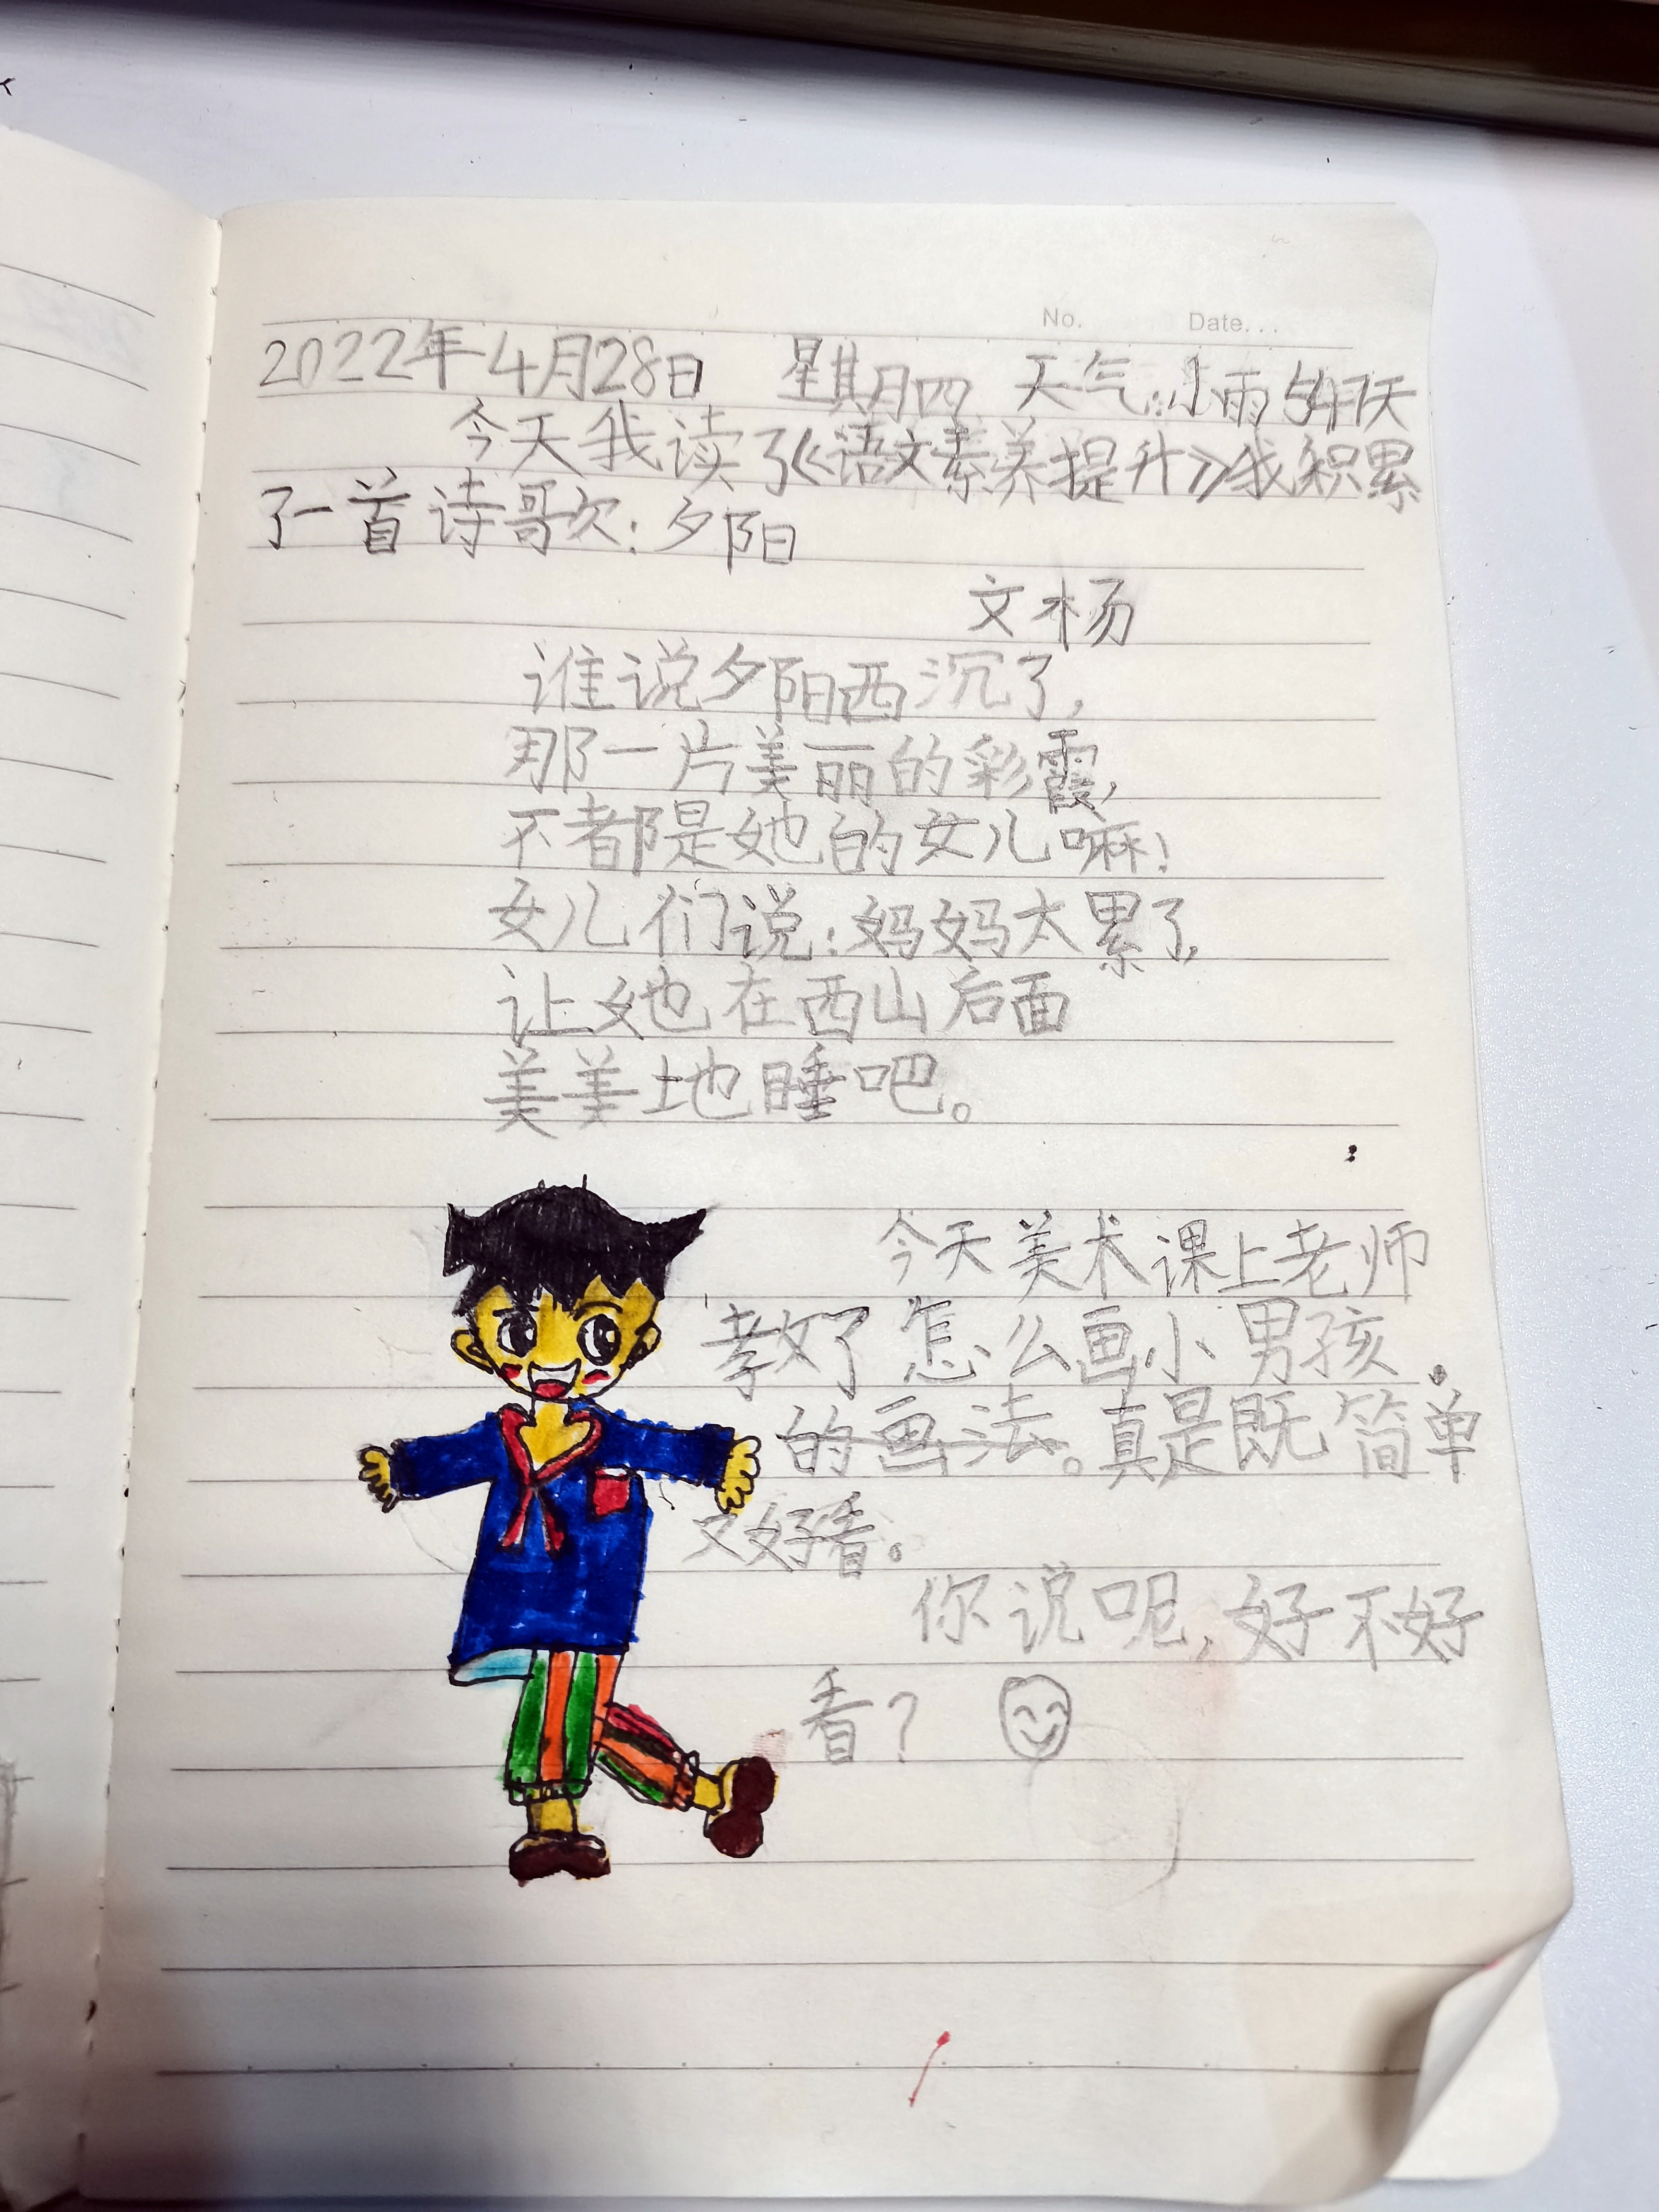 No. Date...
2022年4月28日 星期四 天气:小雨 547天
今天我读了《语文素养提升》我积累
了一首诗歌:夕阳
文杨
谁说夕阳西沉了,
那一片美丽的彩霞,
不都是她的女儿嘛!
女儿们说:妈妈太累了,
让她在西山后面
美美地睡吧。
今天美术课上老师
教了怎么画小男孩.
的画法。真是既简单
又好看。
你说呢,好不好
看?